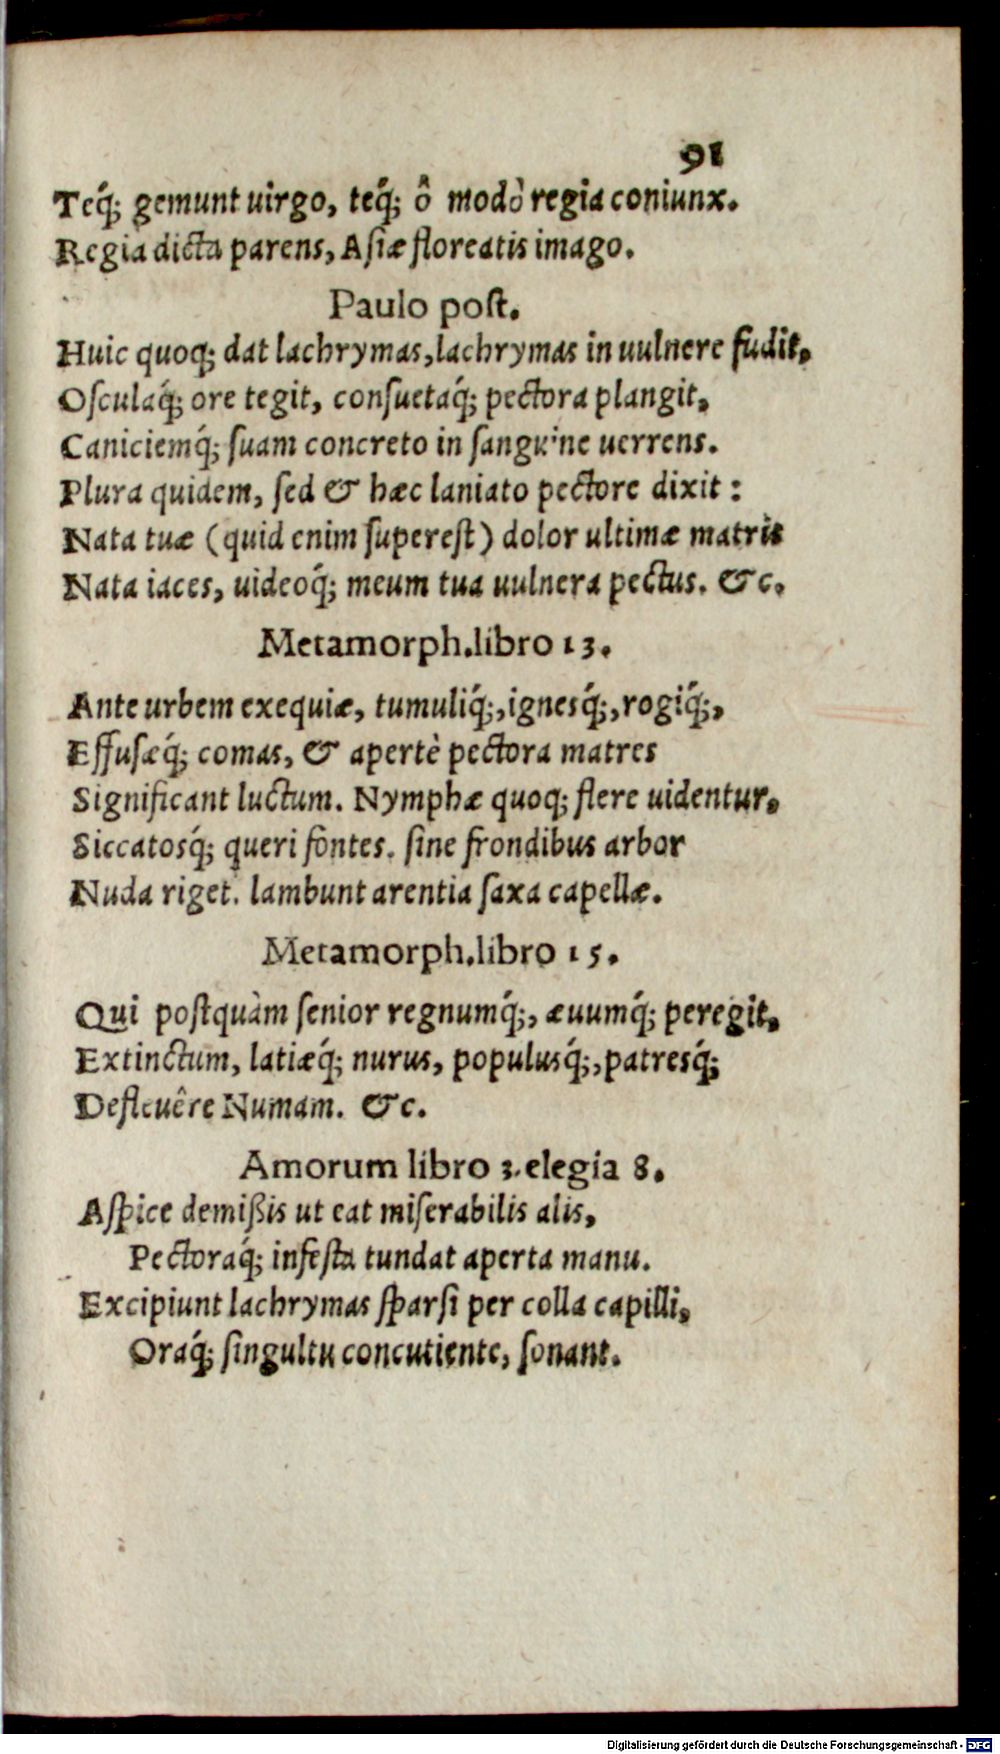 91
Teq́; gemunt uirgo, teq́; ô modò regia coniunx.
Regia dicta parens, Asiæ floreatis imago.
Paulo post.
Huic quoq; dat lachrymas, lachrymas in uulnere fudit,
Osculaq́; ore tegit, consuetaq́; pectora plangit,
Caniciemq́; suam concreto in sanguine uerrens.
Plura quidem, sed & hæc laniato pectore dixit:
Nata tuæ (quid enim superest) dolor ultimæ matris
Nata iaces, uideoq́; meum tua uulnera pectus. &c.
Metamorph.libro 13.
Ante urbem exequiæ, tumuliq́;, ignesq́;, rogiq́;,
Effusæq́; comas, & apertè pectora matres
Significant luctum. Nymphæ quoq; flere uidentur,
Siccatosq́; queri fontes. sine frondibus arbor
Nuda riget. lambunt arentia saxa capellæ.
Metamorph.libro 15.
Qui postquàm senior regnumq́;, æuumq́; peregit,
Extinctum, latiæq́; nurus, populusq́;, patresq́;
Defleuêre Numam. &c.
Amorum libro 3.elegia 8.
Aspice demißis ut eat miserabilis alis,
Pectoraq́; infesta tundat aperta manu.
Excipiunt lachrymas sparsi per colla capilli,
Oraq́; singultu concutiente, sonant.
Digitalisierung gefördert durch die Deutsche Forschungsgemeinschaft - DFG